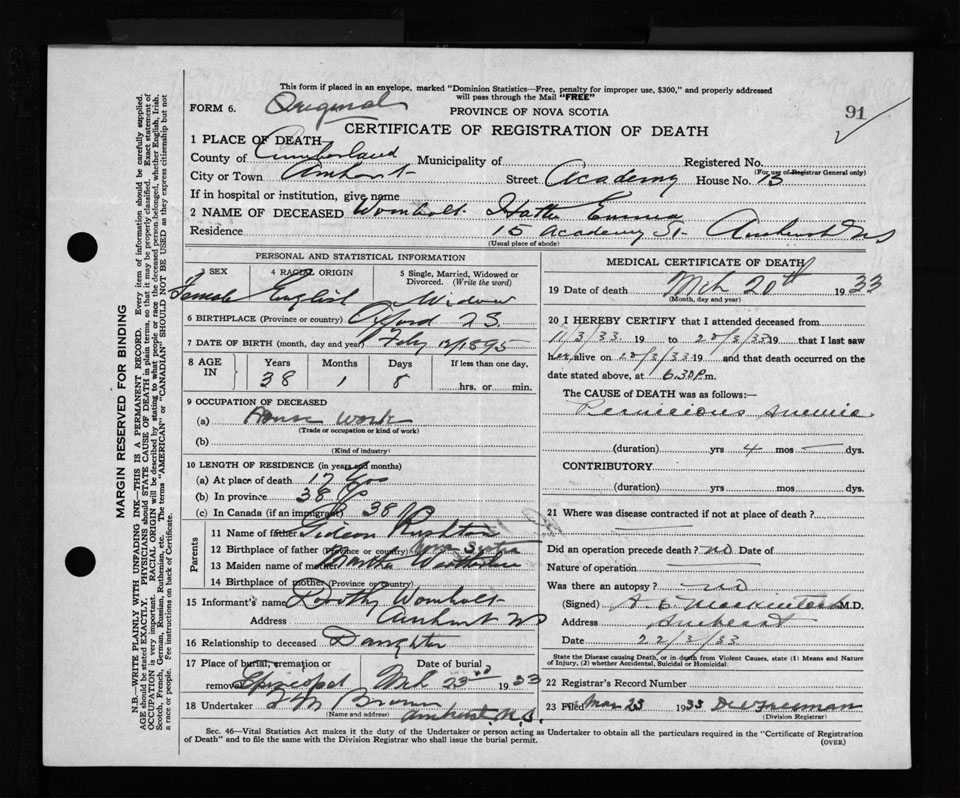 This form if placed in an envelope, marked "Dominion Statistics—Free, penalty for improper use, $300," and properly addressed
will pass through the Mail "FREE"
FORM 6. Original
PROVINCE OF NOVA SCOTIA
91
CERTIFICATE OF REGISTRATION OF DEATH
1 PLACE OF DEATH
County of Cumberland Municipality of Registered No.
(For use of Registrar General only)
City or Town Amherst Street Academy House No. 15
If in hospital or institution, give name
2 NAME OF DECEASED Wornholt Hattie Emma
Residence 15 Academy St. Amherst NS
(Usual place of abode)
PERSONAL AND STATISTICAL INFORMATION
3 SEX Female
4 RACIAL ORIGIN English
5 Single, Married, Widowed or Divorced. (Write the word) Widow
6 BIRTHPLACE (Province or country) Oxford N.S.
7 DATE OF BIRTH (month, day and year) Feby 12/1895
8 AGE IN Years Months Days If less than one day,
38 1 8 hrs. or min.
9 OCCUPATION OF DECEASED
(a) House work
(Trade or occupation or kind of work)
(b)
(Kind of industry)
10 LENGTH OF RESIDENCE (in years and months)
(a) At place of death 17 yrs
(b) In province 38 yrs
(c) In Canada (if an immigrant) 38
Parents
11 Name of father Gideon Rushton
12 Birthplace of father (Province or country) Nova Scotia
13 Maiden name of mother Martha
14 Birthplace of mother (Province or country)
15 Informant's name Dorothy Wornholt
Address Amherst NS
16 Relationship to deceased Daughter
17 Place of burial, cremation or removal Episcopal
Date of burial Mch 23rd 1933
18 Undertaker Brown
(Name and address)
Amherst N.S.
MEDICAL CERTIFICATE OF DEATH
19 Date of death Mch 20th 1933
(Month, day and year)
20 I HEREBY CERTIFY that I attended deceased from
1/3/33. 19 to 20/3/33 19 that I last saw
her alive on 20/3/33 19 and that death occurred on the
date stated above, at 6.30 P.m.
The CAUSE of DEATH was as follows:—
Pernicious Anemia
(duration) yrs 4 mos — dys.
CONTRIBUTORY
(duration) yrs mos dys.
21 Where was disease contracted if not at place of death?
Did an operation precede death? no Date of
Nature of operation
Was there an autopsy? no
(Signed) A. E. Mackintosh M.D.
Address Amherst
Date 22/3/33.
State the Disease causing Death, or in death from Violent Causes, state (1) Means and Nature
of Injury, (2) whether Accidental, Suicidal or Homicidal.
22 Registrar's Record Number
23 Filed Mar 23 1933 Freeman
(Division Registrar)
Sec. 46—Vital Statistics Act makes it the duty of the Undertaker or person acting as Undertaker to obtain all the particulars required in the "Certificate of Registration
of Death" and to file the same with the Division Registrar who shall issue the burial permit.
(OVER)
MARGIN RESERVED FOR BINDING
N.B.—WRITE PLAINLY WITH UNFADING INK—THIS IS A PERMANENT RECORD. Every item of information should be carefully supplied.
AGE should be stated EXACTLY. PHYSICIANS should STATE CAUSE OF DEATH in plain terms, so that it may be properly classified. Exact statement of
OCCUPATION is very important. RACIAL ORIGIN will be described by stating to what people or race the deceased person belonged, whether English, Irish,
Scotch, French, German, Russian, Ruthenian, etc. The terms "AMERICAN" or "CANADIAN" SHOULD NOT BE USED as they express citizenship but not
a race or people. See instructions on back of Certificate.